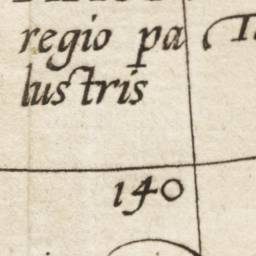 regio pa
lustris
140